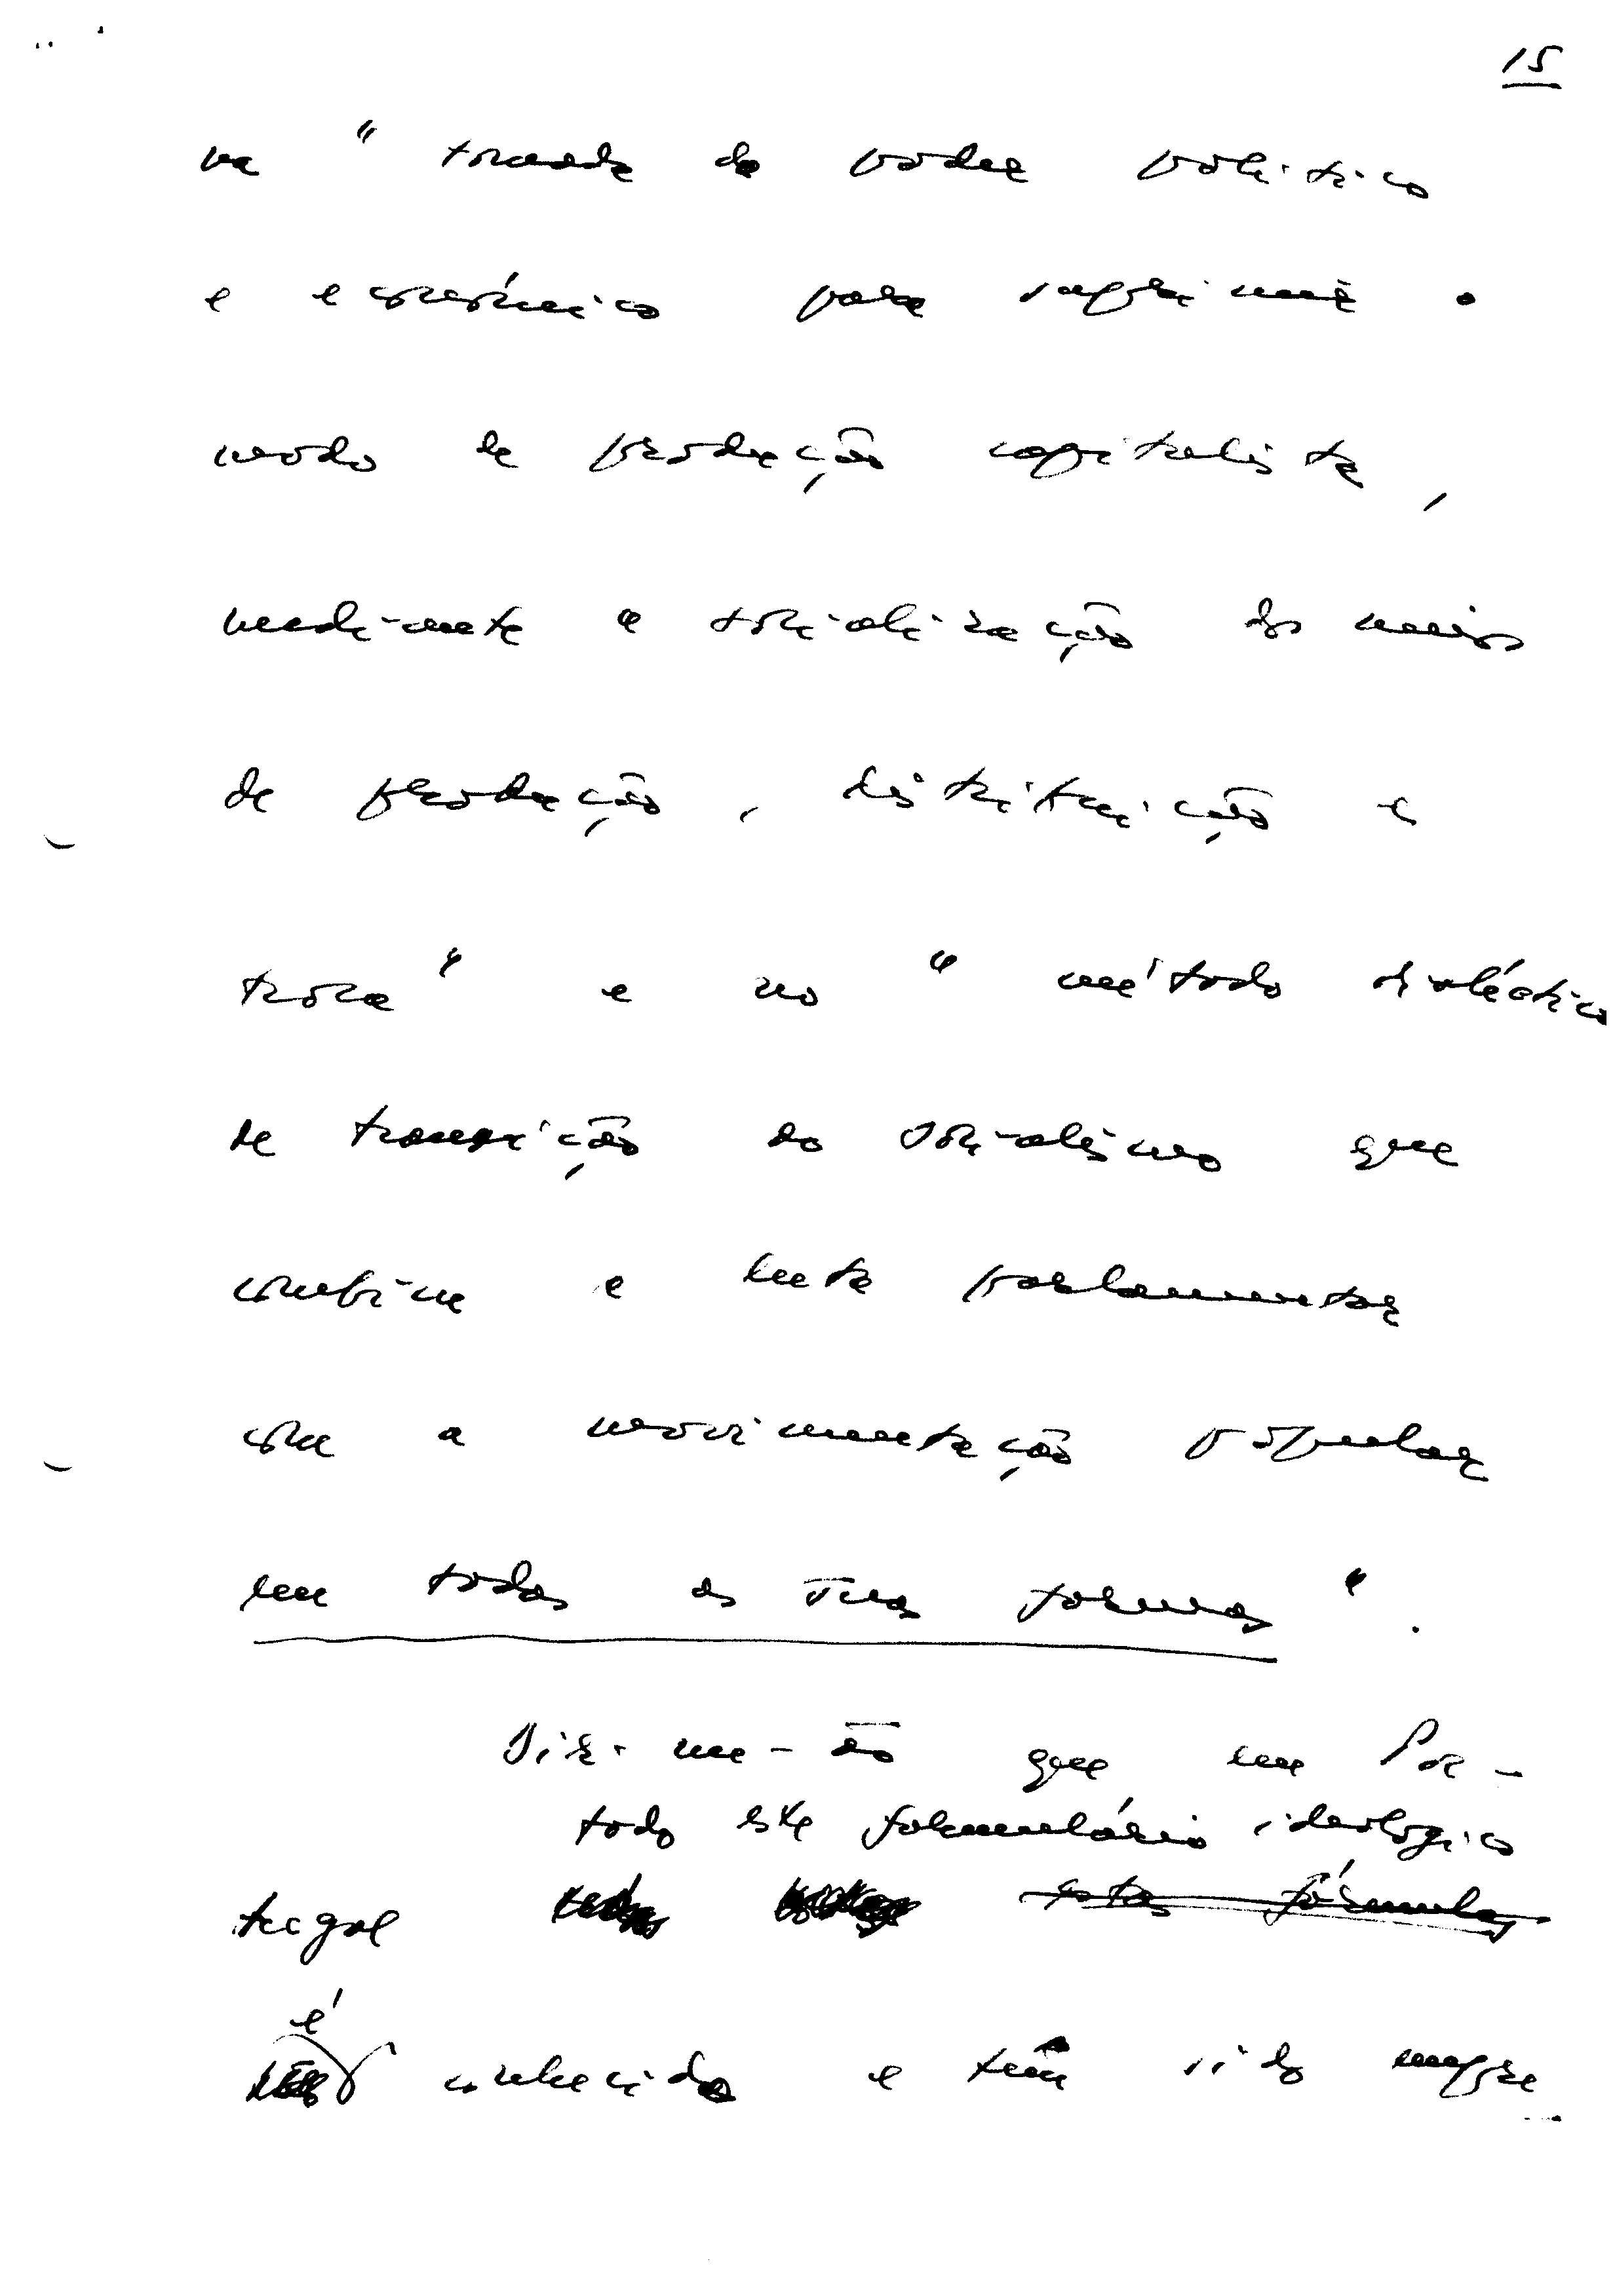 15
na " tomada do poder político
e económico para suprimir o
modo de produção capitalista,
mediante a socialização dos meios
de produção, distribuição e
troca" e no "método dialéctico
de transição ao socialismo que
combine a luta parlamentar
com a movimentação popular
em todas as suas formas".
Dir-me-ão que em Por-
todo este formulário ideologico
tugal estas fórmulas
é
conhecido e tem sido sempre